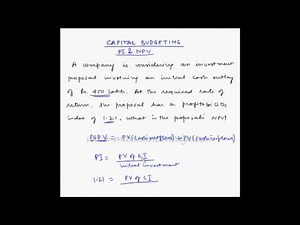 CAPITAL BUDGETING
PI & NPV
A company is considering an investment
proposal involving an initial cash outlay
of Rs. 450 lakh. At the required rate of
return, the proposal has a profitability
index of 1.21, what is the proposal's NPV?
= PV (cash inflow) - PV (cash outflow)
PI = PV of CI
initial investment
1.21 = PV of CI